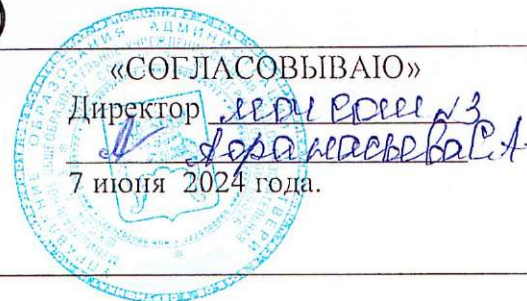 «СОГЛАСОВЫВАЮ»
Директор МОУ СОШ №3
Афанасьева С.А.
7 июня 2024 года.